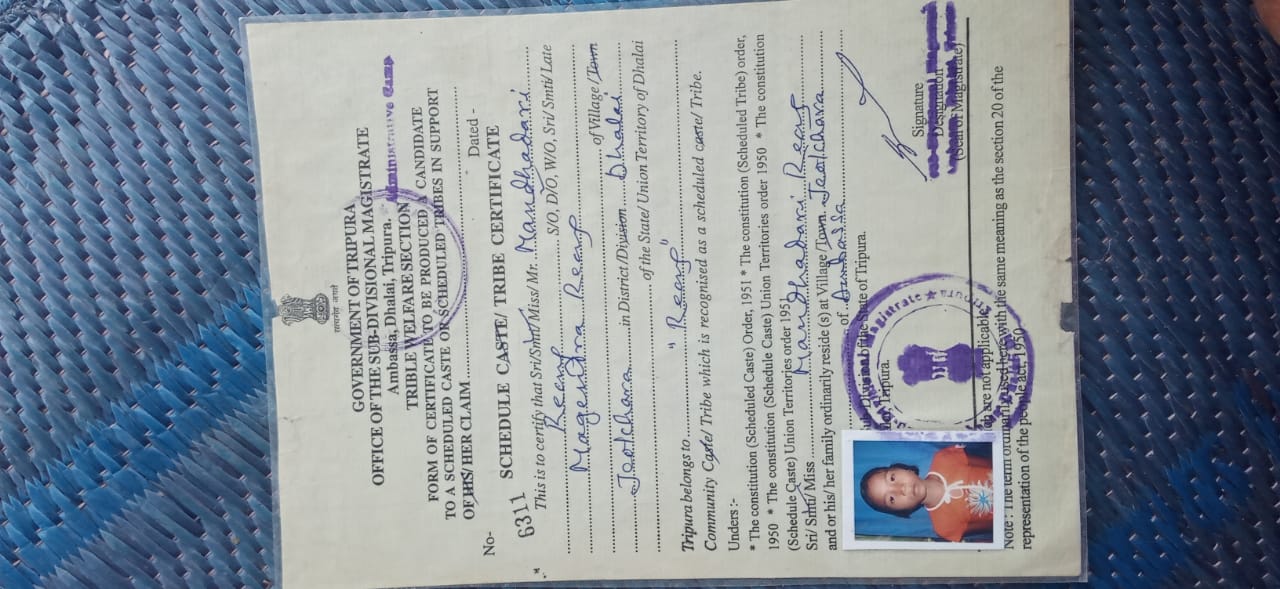 सत्यमेव जयते
GOVERNMENT OF TRIPURA
OFFICE OF THE SUB-DIVISIONAL MAGISTRATE
Ambassa, Dhalai, Tripura.
TRIBLE WELFARE SECTION
FORM OF CERTIFICATE TO BE PRODUCED A CANDIDATE
TO A SCHEDULED CASTE OR SCHEDULED TRIBES IN SUPPORT
OF HIS/ HER CLAIM
No- Dated -
6311 SCHEDULE CASTE/ TRIBE CERTIFICATE
This is to certify that Sri/Smti/Miss/ Mr. Mandhadari
Reang S/O, D/O, W/O, Sri/ Smti/ Late
Magendra Reang of Village /Town
Jeolchara in District /Division Dhalai
of the State/ Union Territory of Dhalai
Tripura belongs to "Reang"
Community Caste/ Tribe which is recognised as a scheduled caste/ Tribe.
Unders :-
* The constitution (Scheduled Caste) Order, 1951 * The constitution (Scheduled Tribe) order,
1950 * The constitution (Schedule Caste) Union Territories order 1950 * The constitution
(Schedule Caste) Union Territories order 1951
Sri/ Smti/ Miss Mandhadari Reang
and or his/ her family ordinarily reside (s) at Village /Town Jeolchara
of
State of Tripura.
Tripura.
Signature
Designation
(Seal of Magistrate)
are not applicable,
Note : The term ordinarily used here with the same meaning as the section 20 of the
representation of the people act, 1950